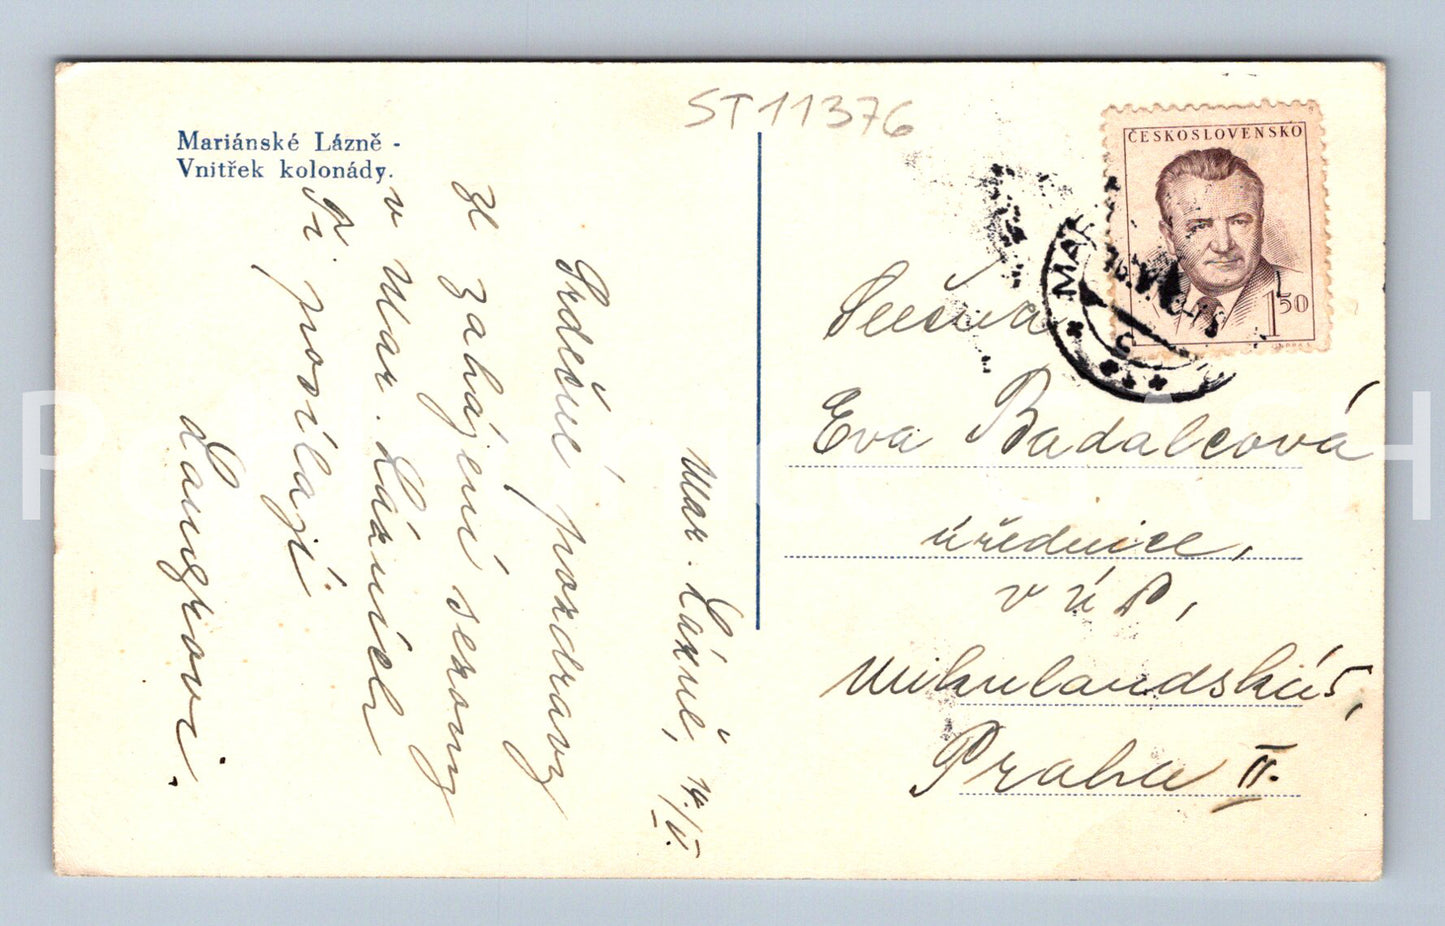 ST11376
Mariánské Lázně -
Vnitřek kolonády.
ČESKOSLOVENSKO
1 50
MAR
Mar. Lázně, 14./V.
Srdečné pozdravy
z zahájení sezony
v Mar. Lázních
Ti posílají
Langrovi.
Slečna
Eva Badalcová
úřednice,
v ÚP,
Mikulandská 5,
Praha II.